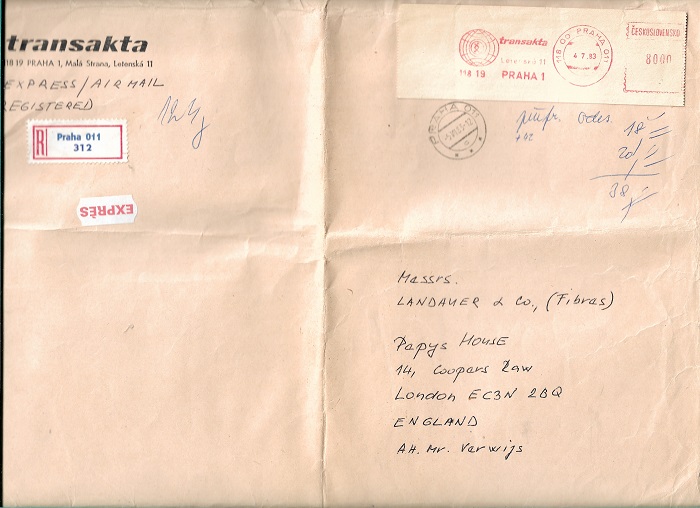 transakta
118 19 PRAHA 1, Malá Strana, Letenská 11
EXPRESS/AIR MAIL
REGISTERED
R
Praha 011
312
EXPRÈS
transakta
Letenská 11
118 19 PRAHA 1
118 00 PRAHA 011
4.7.83
ČESKOSLOVENSKO
8000
PRAHA 011
18
20
38
Massrs.
LANDAUER & Co., (Fibras)
Papys HOUSE
14, Coopars Raw
London EC3N 2BQ
ENGLAND
Att. Mr. Varwijs